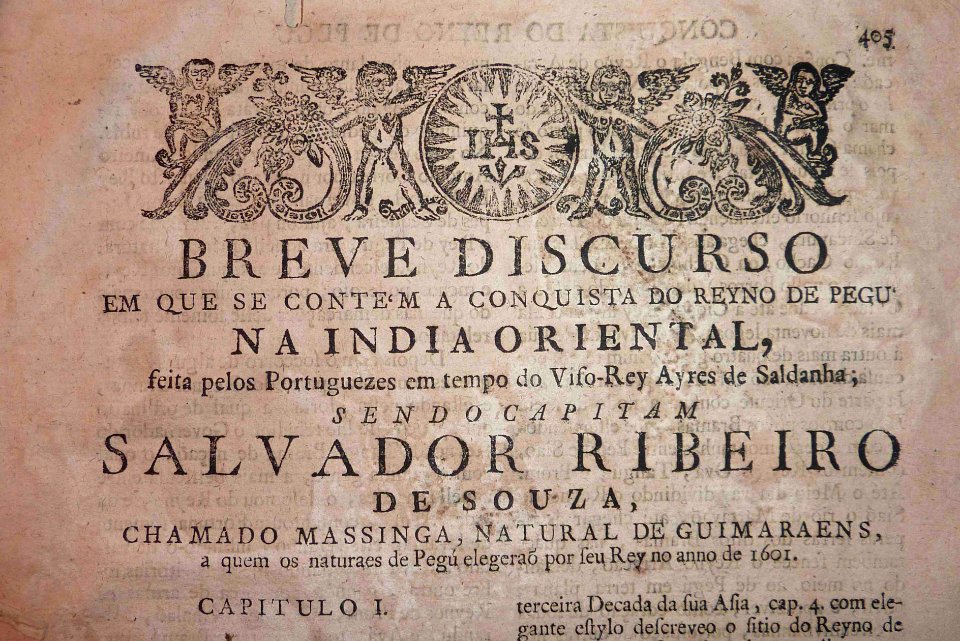 405
IHS
BREVE DISCURSO
EM QUE SE CONTE'M A CONQUISTA DO REYNO DE PEGU'
NA INDIA ORIENTAL,
feita pelos Portuguezes em tempo do Viſo-Rey Ayres de Saldanha;
SENDO CAPITAM
SALVADOR RIBEIRO
DE SOUZA,
CHAMADO MASSINGA, NATURAL DE GUIMARAENS,
a quem os naturaes de Pegú elegeraõ por ſeu Rey no anno de 1601.
CAPITULO I.
terceira Decada da ſua Aſia, cap. 4. com ele-
gante eſtylo deſcreveo o ſitio do Reyno de